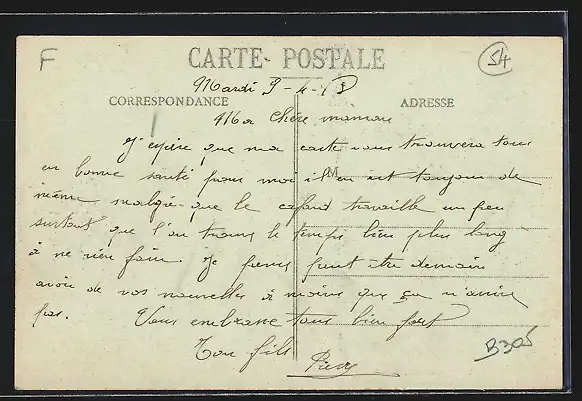 F
CARTE POSTALE
54
Mardi 9-4-18
CORRESPONDANCE
ADRESSE
Ma chère maman
J'espère que ma carte vous trouvera tous
en bonne santé pour moi il en est toujours de
même malgré que le cafard travaille un peu
surtout que l'on trouve le temps bien plus long
à ne rien faire. Je pense peut être demain
avoir de vos nouvelles à moins que ça n'arrive
pas. Vous embrasse tous bien fort
Ton fils
B305